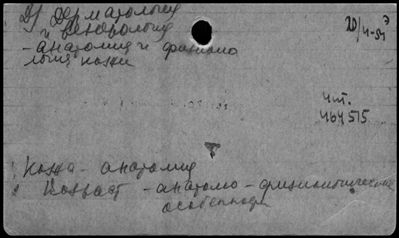 Дерматология
и венерология
- анатомия и физиоло
логия кожи
20/4-54
чит.
464515
Кожа - анатомия
Возраст - анатомо-физиологические
особенности